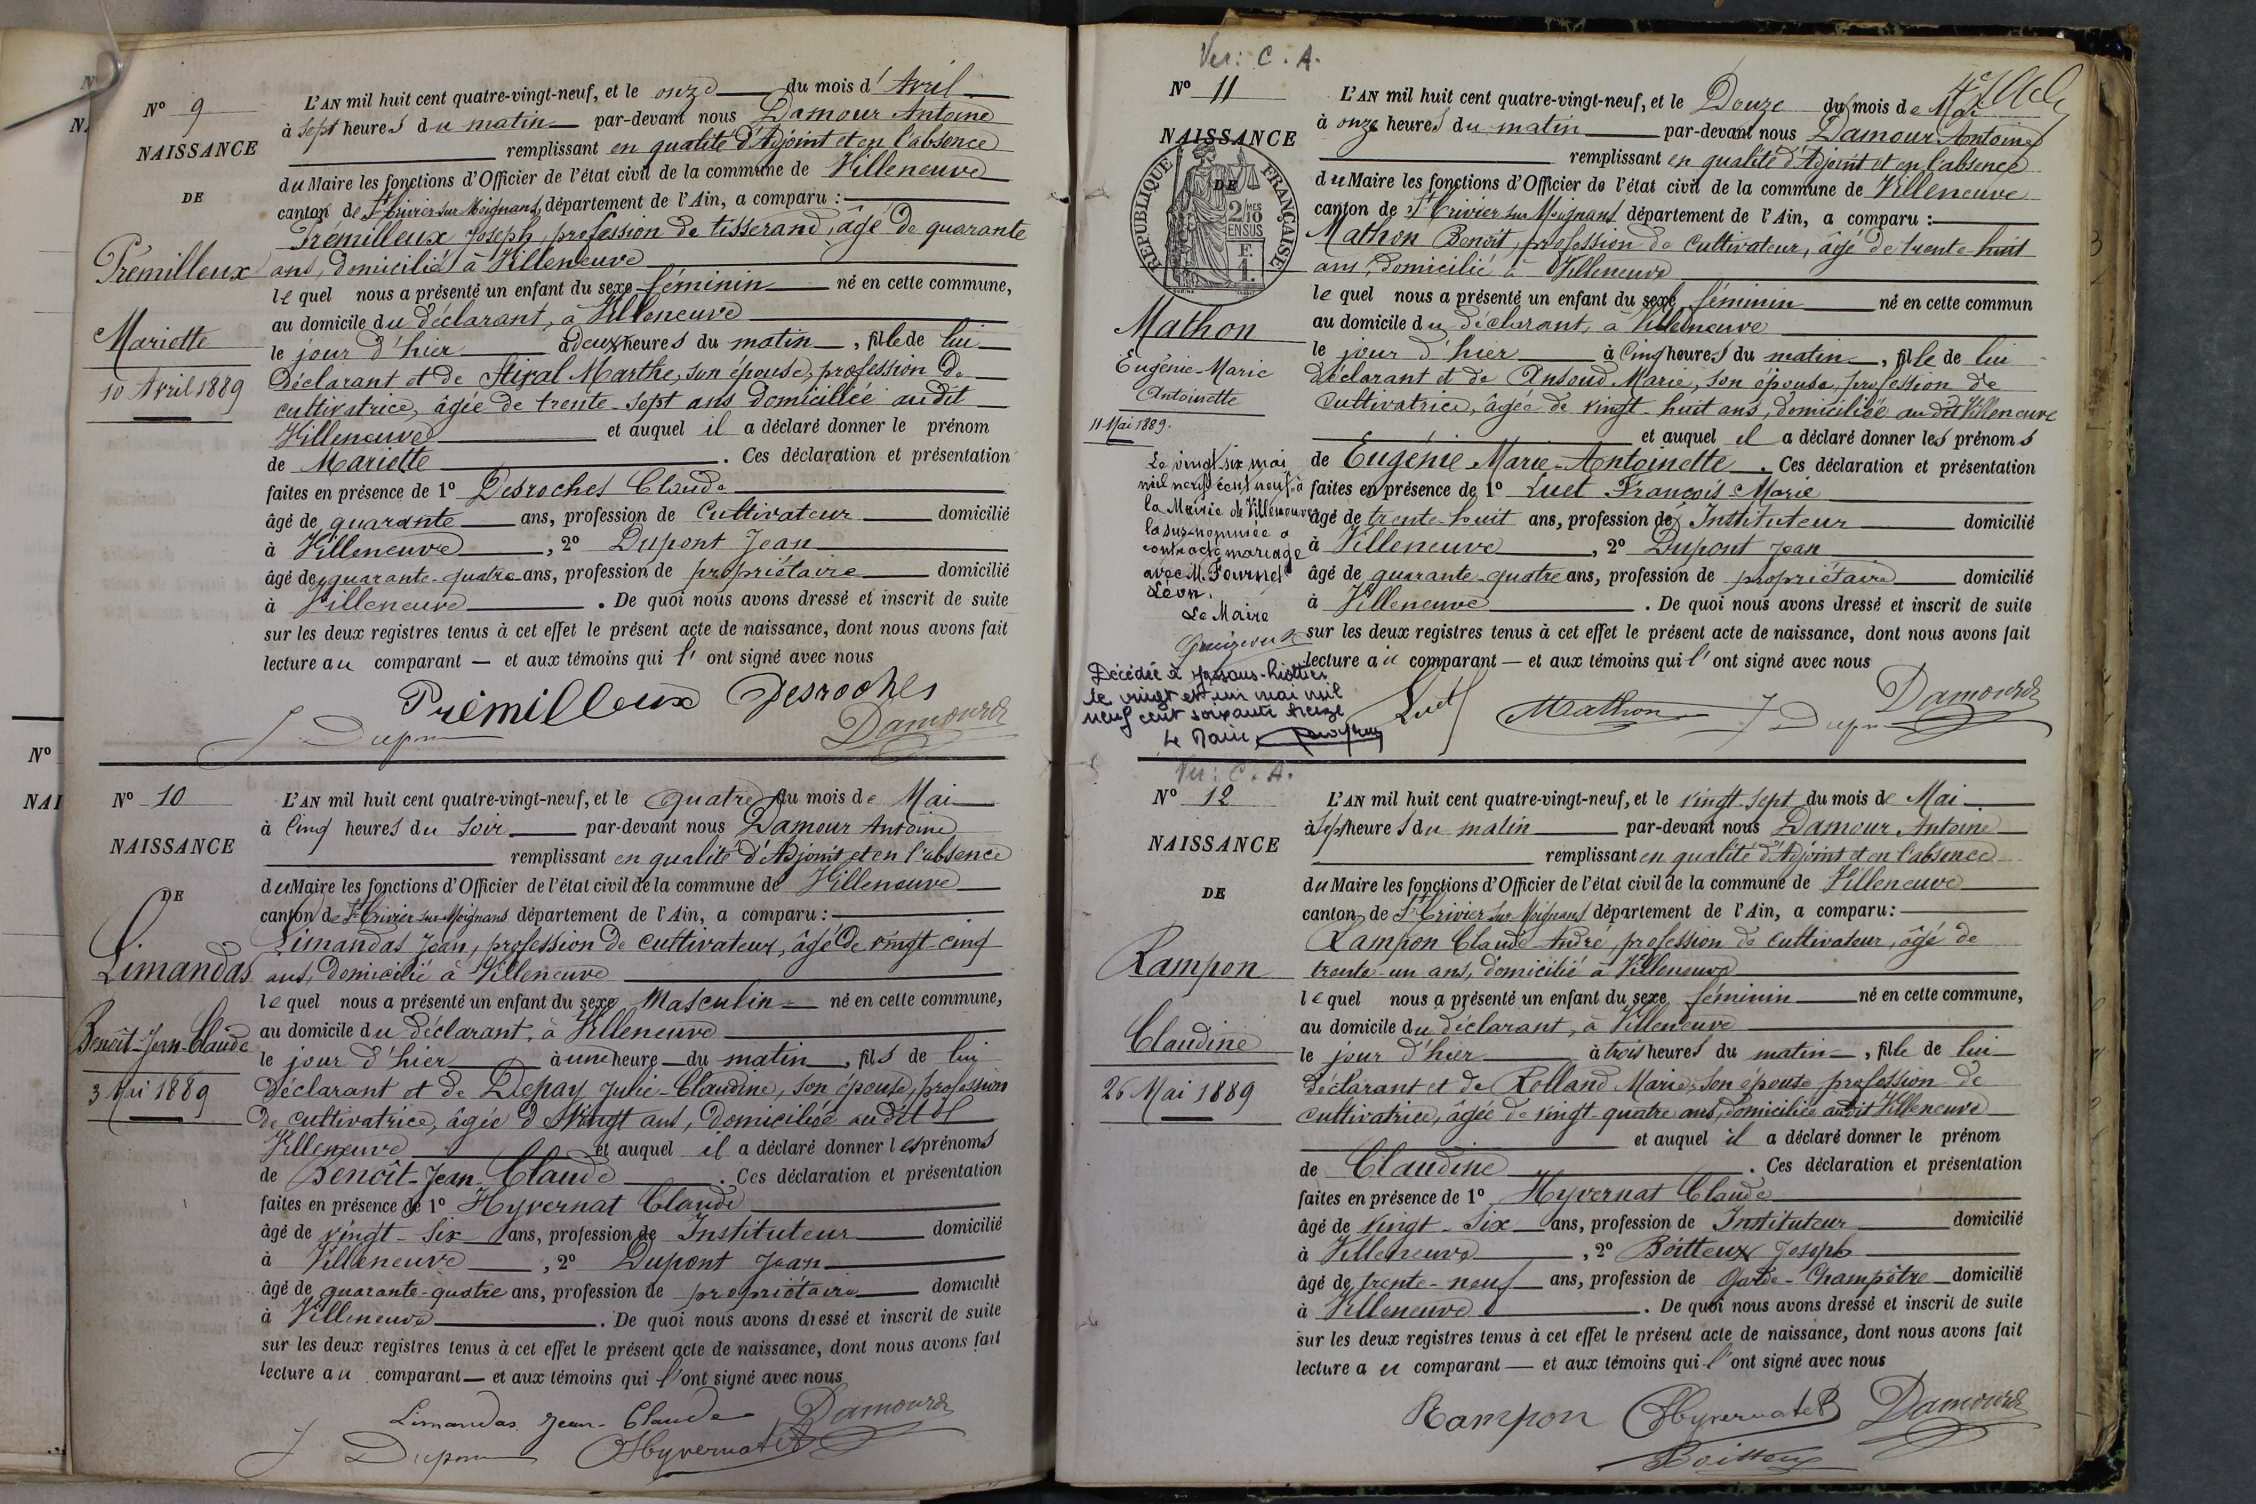 Nº 9
NAISSANCE
DE
Prémilleux
Mariette
10 Avril 1889
L'AN mil huit cent quatre-vingt-neuf, et le onze du mois d'Avril
à sept heures du matin par-devant nous Damour Antoine
remplissant en qualité d'Adjoint et en l'absence
du Maire les fonctions d'Officier de l'état civil de la commune de Villeneuve
canton de St Trivier sur Moignans, département de l'Ain, a comparu :
Prémilleux Joseph, profession de tisserand, âgé de quarante
ans, domicilié à Villeneuve
lequel nous a présenté un enfant du sexe féminin né en cette commune,
au domicile du déclarant, à Villeneuve
le jour d'hier à deux heures du matin, fille de lui
déclarant et de Marthe, son épouse, profession de
cultivatrice, âgée de trente-sept ans domiciliée audit
Villeneuve et auquel il a déclaré donner le prénom
de Mariette. Ces déclaration et présentation
faites en présence de 1º Desroches Claude
âgé de quarante ans, profession de Cultivateur domicilié
à Villeneuve, 2º Dupont Jean
âgé de quarante-quatre ans, profession de propriétaire domicilié
à Villeneuve. De quoi nous avons dressé et inscrit de suite
sur les deux registres tenus à cet effet le présent acte de naissance, dont nous avons fait
lecture au comparant — et aux témoins qui l'ont signé avec nous
Prémilleux Desroches
J Dupon Damour
Nº 10
NAISSANCE
DE
Limandas
Benoît-Jean-Claude
3 Mai 1889
L'AN mil huit cent quatre-vingt-neuf, et le quatre du mois de Mai
à Cinq heures du soir par-devant nous Damour Antoine
remplissant en qualité d'Adjoint et en l'absence
du Maire les fonctions d'Officier de l'état civil de la commune de Villeneuve
canton de St Trivier sur Moignans département de l'Ain, a comparu :
Limandas Jean, profession de cultivateur, âgé de vingt-cinq
ans, domicilié à Villeneuve
lequel nous a présenté un enfant du sexe Masculin né en cette commune,
au domicile du déclarant, à Villeneuve
le jour d'hier à une heure du matin, fils de lui
déclarant et de Depay Julie-Claudine, son épouse, profession
de cultivatrice, âgée de vingt ans, domiciliée audit
Villeneuve et auquel il a déclaré donner les prénoms
de Benoît-Jean-Claude. Ces déclaration et présentation
faites en présence de 1º Hyvernat Claude
âgé de vingt-six ans, profession de Instituteur domicilié
à Villeneuve, 2º Dupont Jean
âgé de quarante-quatre ans, profession de propriétaire domicilié
à Villeneuve. De quoi nous avons dressé et inscrit de suite
sur les deux registres tenus à cet effet le présent acte de naissance, dont nous avons fait
lecture au comparant — et aux témoins qui l'ont signé avec nous
Limandas Jean-Claude Damour
J Dupon Hyvernat
Ver: C. A.
Nº 11
NAISSANCE
DE
RÉPUBLIQUE FRANÇAISE
2/10 MES
EN SUS
F.
1.
Mathon
Eugénie-Marie
Antoinette
11 Mai 1889.
Le vingt-six mai
mil neuf cent neuf à
la Mairie de Villeneuve
la sus-nommée a
contracté mariage
avec M. Fournel
Léon.
Le Maire
Décédée à Jassans-Riottier
le vingt et un mai mil
neuf cent soixante treize
Le Maire
L'AN mil huit cent quatre-vingt-neuf, et le Douze du mois de Mai
à onze heures du matin par-devant nous Damour Antoine
remplissant en qualité d'Adjoint et en l'absence
du Maire les fonctions d'Officier de l'état civil de la commune de Villeneuve
canton de St Trivier sur Moignans département de l'Ain, a comparu :
Mathon Benoît, profession de cultivateur, âgé de trente-huit
ans, domicilié à Villeneuve
lequel nous a présenté un enfant du sexe féminin né en cette commun
au domicile du déclarant, à Villeneuve
le jour d'hier à Cinq heures du matin, fille de lui
déclarant et de Ansoud Marie, son épouse, profession de
cultivatrice, âgée de vingt-huit ans, domiciliée au dit Villeneuve
et auquel il a déclaré donner les prénoms
de Eugénie Marie-Antoinette. Ces déclaration et présentation
faites en présence de 1º Luet François-Marie
âgé de trente-huit ans, profession de Instituteur domicilié
à Villeneuve, 2º Dupont Jean
âgé de quarante-quatre ans, profession de propriétaire domicilié
à Villeneuve. De quoi nous avons dressé et inscrit de suite
sur les deux registres tenus à cet effet le présent acte de naissance, dont nous avons fait
lecture au comparant — et aux témoins qui l'ont signé avec nous
Luet Mathon J Dupon Damour
Ver: C. A.
Nº 12
NAISSANCE
DE
Rampon
Claudine
26 Mai 1889
L'AN mil huit cent quatre-vingt-neuf, et le vingt-sept du mois de Mai
à sept heures du matin par-devant nous Damour Antoine
remplissant en qualité d'Adjoint et en l'absence
du Maire les fonctions d'Officier de l'état civil de la commune de Villeneuve
canton de St Trivier sur Moignans département de l'Ain, a comparu :
Rampon Claude-André profession de cultivateur, âgé de
trente-un ans, domicilié à Villeneuve
lequel nous a présenté un enfant du sexe féminin né en cette commune,
au domicile du déclarant, à Villeneuve
le jour d'hier à trois heures du matin, fille de lui
déclarant et de Rolland Marie, son épouse, profession de
cultivatrice, âgée de vingt-quatre ans, domiciliée audit Villeneuve
et auquel il a déclaré donner le prénom
de Claudine. Ces déclaration et présentation
faites en présence de 1º Hyvernat Claude
âgé de vingt-six ans, profession de Instituteur domicilié
à Villeneuve, 2º Boitteux Joseph
âgé de trente-neuf ans, profession de Garde-Champêtre domicilié
à Villeneuve. De quoi nous avons dressé et inscrit de suite
sur les deux registres tenus à cet effet le présent acte de naissance, dont nous avons fait
lecture au comparant — et aux témoins qui l'ont signé avec nous
Rampon Hyvernat Damour
Boitteux